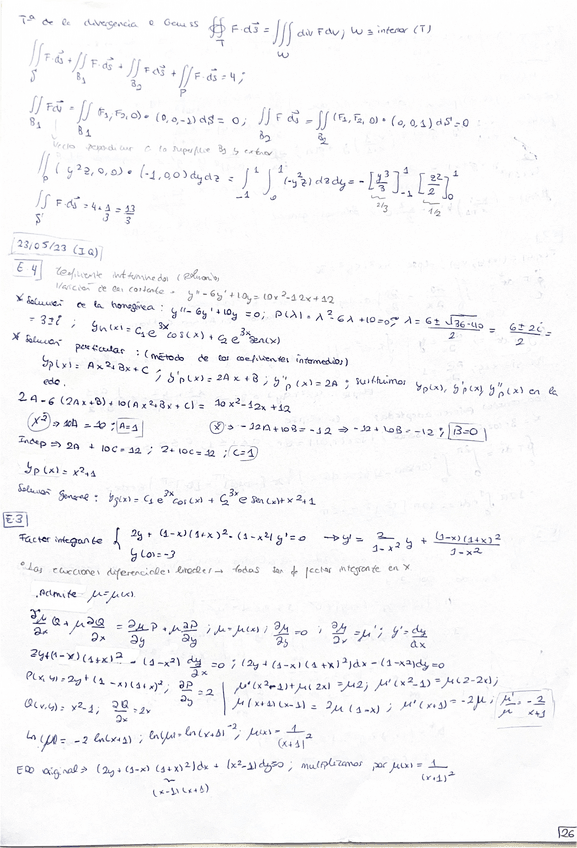 Tª de la divergencia o Gauss ∯_T F·ds⃗ = ∭_W div F dv; W ≡ interior (T)
∬_S F·ds⃗ + ∬_B₁ F·ds⃗ + ∬_B₂ F·ds⃗ + ∬_P F·ds⃗ = 4;
∬_B₁ F ds⃗ = ∬_B₁ (F₁, F₂, 0)·(0,0,-1) dS = 0; ∬_B₂ F ds⃗ = ∬_B₂ (F₁, F₂, 0)·(0,0,1) dS = 0
a la superficie B₁ y exterior
∬_P (y²z, 0, 0)·(-1,0,0) dydz = ∫₋₁¹ ∫₀¹ (-y²z) dzdy = -[y³/3]₋₁¹ [z²/2]₀¹
2/3 1/2
∬_S F·ds⃗ = 4 + 1/3 = 13/3
23/05/23 (IQ)
E 4
y'' - 6y' + 10y = 10x² - 12x + 12
* Solución de la homogénea: y'' - 6y' + 10y = 0; P(λ) = λ² - 6λ + 10 = 0; λ = (6 ± √(36-40))/2 = (6 ± 2i)/2 =
= 3 ± i; y_h(x) = C₁e^3x cos(x) + C₂e^3x sen(x)
* Solución particular: (método de los coeficientes indeterminados)
y_p(x) = Ax² + Bx + C; y'_p(x) = 2Ax + B; y''_p(x) = 2A; sustituimos y_p(x), y'_p(x), y''_p(x) en la
edo.
2A - 6(2Ax + B) + 10(Ax² + Bx + C) = 10x² - 12x + 12
(x²) ⇒ 10A = 10; A=1 (x) ⇒ -12A + 10B = -12 ⇒ -12 + 10B = -12; B=0
Indep ⇒ 2A + 10C = 12; 2 + 10C = 12; C=1
y_p(x) = x² + 1
Solución general: y_g(x) = C₁e^3x cos(x) + C₂^3x e sen(x) + x² + 1
E 3
Factor integrante { 2y + (1-x)(1+x)² - (1-x²) y' = 0 → y' = 2/(1-x²) y + (1-x)(1+x)²/(1-x²)
y(0) = -3
° Las ecuaciones diferenciales lineales → todas son factor integrante en x
Admite μ = μ(x).
∂μ/∂x Q + μ ∂Q/∂x = ∂μ/∂y P + μ ∂P/∂y; μ = μ(x); ∂μ/∂y = 0; ∂μ/∂x = μ'; y' = dy/dx
2y + (1-x)(1+x)² - (1-x²) dy/dx = 0; (2y + (1-x)(1+x)²)dx - (1-x²)dy = 0
P(x,y) = 2y + (1-x)(1+x)²; ∂P/∂y = 2 | μ'(x²-1) + μ(2x) = μ2; μ'(x²-1) = μ(2-2x);
Q(x,y) = x²-1; ∂Q/∂x = 2x | μ'(x+1)(x-1) = 2μ(1-x); μ'(x+1) = -2μ; μ'/μ = -2/(x+1)
ln(μ) = -2 ln(x+1); ln(μ) = ln(x+1)⁻²; μ(x) = 1/(x+1)²
EDO original ⇒ (2y + (1-x)(1+x)²)dx + (x²-1)dy = 0; multiplicamos por μ(x) = 1/(x+1)²
(x-1)(x+1)
26